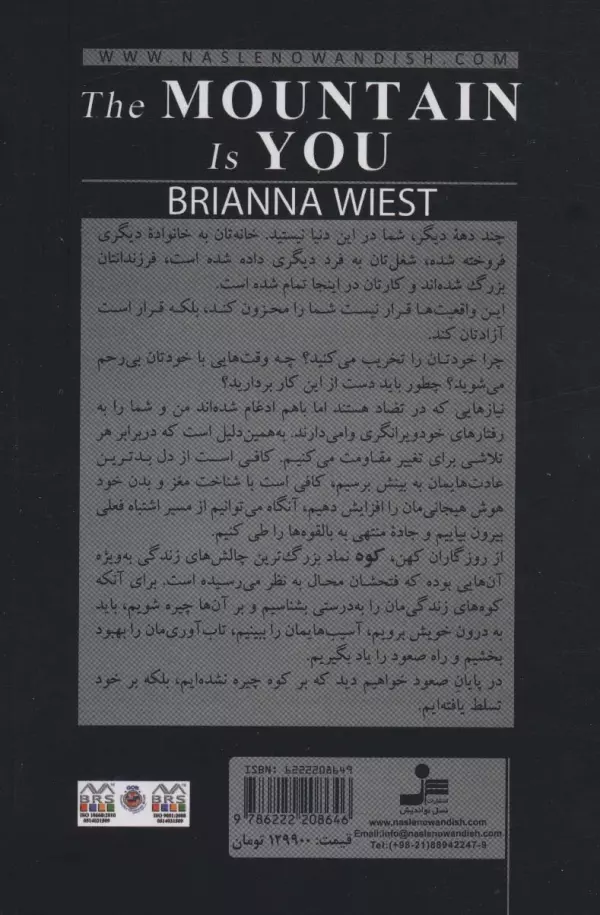 WWW.NASLENOWANDISH.COM
The MOUNTAIN
Is YOU
BRIANNA WIEST
چند دههٔ دیگر، شما در این دنیا نیستید. خانه‌تان به خانوادهٔ دیگری
فروخته شده، شغل‌تان به فرد دیگری داده شده است، فرزندانتان
بزرگ شده‌اند و کارتان در اینجا تمام شده است.
این واقعیت‌ها قرار نیست شما را محزون کند، بلکه قرار است
آزادتان کند.
چرا خودتان را تخریب می‌کنید؟ چه وقت‌هایی با خودتان بی‌رحم
می‌شوید؟ چطور باید دست از این کار بردارید؟
نیازهایی که در تضاد هستند اما باهم ادغام شده‌اند من و شما را به
رفتارهای خودویرانگری وامی‌دارند. به‌همین‌دلیل است که دربرابر هر
تلاشی برای تغییر مقاومت می‌کنیم. کافی است از دل بدترین
عادت‌هایمان به بینش برسیم، کافی است با شناخت مغز و بدن خود
هوش هیجانی‌مان را افزایش دهیم، آنگاه می‌توانیم از مسیر اشتباه فعلی
بیرون بیاییم و جادهٔ منتهی به بالقوه‌ها را طی کنیم.
از روزگاران کهن، کوه نماد بزرگ‌ترین چالش‌های زندگی به‌ویژه
آن‌هایی بوده که فتحشان محال به نظر می‌رسیده است. برای آنکه
کوه‌های زندگی‌مان را به‌درستی بشناسیم و بر آن‌ها چیره شویم، باید
به درون خویش برویم، آسیب‌هایمان را ببینیم، تاب‌آوری‌مان را بهبود
بخشیم و راه صعود را یاد بگیریم.
در پایان صعود خواهیم دید که بر کوه چیره نشده‌ایم، بلکه بر خود
تسلط یافته‌ایم.
BRS
ISO 10668:2010
BRS
ISO-9001:2008
ISBN: 6222208649
9 786222 208646
قیمت: ۱۲۹۹۰۰ تومان
انتشارات
نسل نواندیش
www.naslenowandish.com
Email:info@naslenowandish.com
Tel:(+98-21)88942247-9